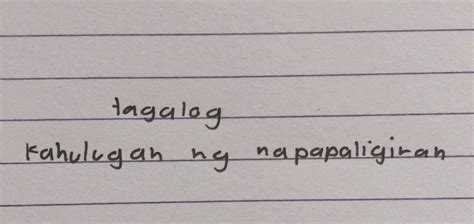 tagalog
kahulugan ng napapaligiran